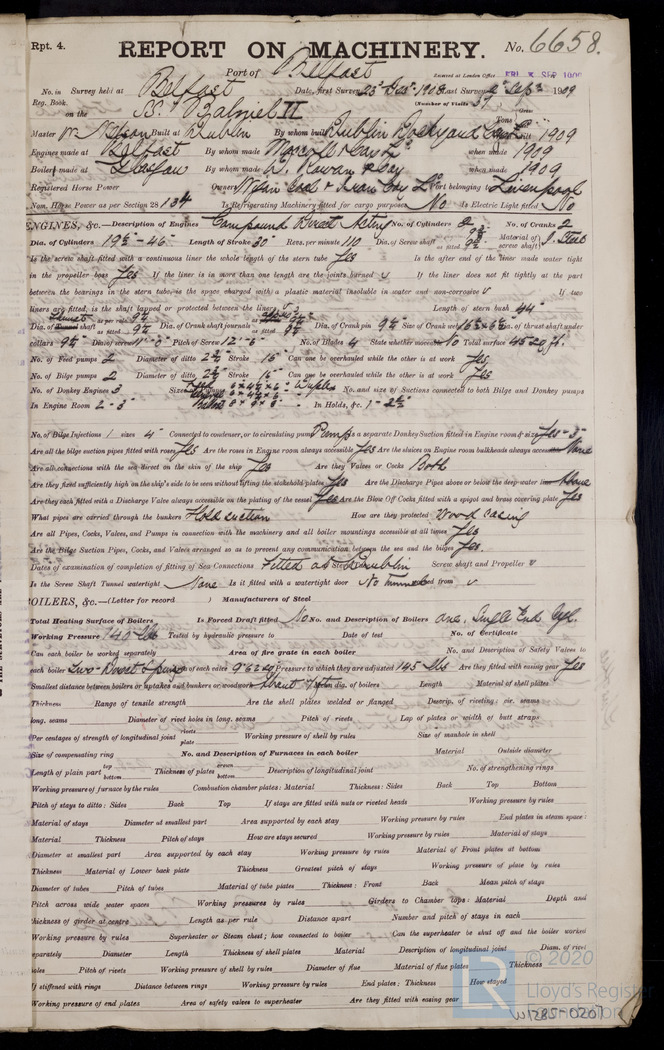 Rpt. 4.
REPORT ON MACHINERY. No. 6658.
Port of Belfast
Received at London Office FRI. 3 SEP 1909
No. in Survey held at Belfast Date, first Survey 23rd Last Survey 2nd Sept 1909
Reg. Book. (Number of Visits 37
on the SS. Tons
Master Built at Dublin By whom built Dublin Dockyard Built 1909
Engines made at Belfast By whom made when made 1909
Boilers made at Glasgow By whom made D. Rowan & Coy when made 1909
Registered Horse Power Owners Port belonging to Liverpool
Nom. Horse Power as per Section 28 134 Is Refrigerating Machinery fitted for cargo purposes No Is Electric Light fitted No
ENGINES, &c.—Description of Engines Compound Direct Acting No. of Cylinders 2 No. of Cranks 2
Dia. of Cylinders 19½ - 46" Length of Stroke 30" Revs. per minute 110 Dia. of Screw shaft as fitted Material of screw shaft
Is the screw shaft fitted with a continuous liner the whole length of the stern tube Yes Is the after end of the liner made water tight
in the propeller boss Yes If the liner is in more than one length are the joints burned v If the liner does not fit tightly at the part
between the bearings in the stern tube, is the space charged with a plastic material insoluble in water and non-corrosive v If two
liners are fitted, is the shaft lapped or protected between the liners v Length of stern bush 44"
Dia. of Tunnel shaft as fitted Dia. of Crank shaft journals as fitted Dia. of Crank pin 9½" Size of Crank webs Dia. of thrust shaft under
collars 9½" Dia. of screw 11'-0" Pitch of Screw 12'-6" No. of Blades 4 State whether moveable No Total surface 45.20 ft.
No. of Feed pumps 2 Diameter of ditto Stroke 15" Can one be overhauled while the other is at work Yes
No. of Bilge pumps 2 Diameter of ditto Stroke 15" Can one be overhauled while the other is at work Yes
No. of Donkey Engines 3 Sizes of Pumps Duplex No. and size of Suctions connected to both Bilge and Donkey pumps
In Engine Room 2 - 3" In Holds, &c. 1 - 2½"
No. of Bilge Injections 1 sizes 4" Connected to condenser, or to circulating pump Pump Is a separate Donkey Suction fitted in Engine room & size Yes - 3"
Are all the bilge suction pipes fitted with roses Yes Are the roses in Engine room always accessible Yes Are the sluices on Engine room bulkheads always accessible None
Are all connections with the sea direct on the skin of the ship Yes Are they Valves or Cocks Both
Are they fixed sufficiently high on the ship's side to be seen without lifting the stokehold plates Yes Are the Discharge Pipes above or below the deep water line Above
Are they each fitted with a Discharge Valve always accessible on the plating of the vessel Yes Are the Blow Off Cocks fitted with a spigot and brass covering plate Yes
What pipes are carried through the bunkers Hold suction How are they protected Wood casing
Are all Pipes, Cocks, Valves, and Pumps in connection with the machinery and all boiler mountings accessible at all times Yes
Are the Bilge Suction Pipes, Cocks, and Valves arranged so as to prevent any communication between the sea and the bilges Yes.
Dates of examination of completion of fitting of Sea Connections Fitted at Dublin Screw shaft and Propeller v
Is the Screw Shaft Tunnel watertight None Is it fitted with a watertight door No Tunnel worked from v
BOILERS, &c.—(Letter for record ) Manufacturers of Steel
Total Heating Surface of Boilers Is Forced Draft fitted No No. and Description of Boilers one, Single End Cyl.
Working Pressure 140 lbs Tested by hydraulic pressure to Date of test No. of Certificate
Can each boiler be worked separately Area of fire grate in each boiler No. and Description of Safety Valves to
each boiler Two - Direct Spring Area of each valve Pressure to which they are adjusted 145 lbs Are they fitted with easing gear Yes
Smallest distance between boilers or uptakes and bunkers or woodwork About Mean dia. of boilers Length Material of shell plates
Thickness Range of tensile strength Are the shell plates welded or flanged Descrip. of riveting: cir. seams
long. seams Diameter of rivet holes in long. seams Pitch of rivets Lap of plates or width of butt straps
Per centages of strength of longitudinal joint rivets plate Working pressure of shell by rules Size of manhole in shell
Size of compensating ring No. and Description of Furnaces in each boiler Material Outside diameter
Length of plain part top bottom Thickness of plates crown bottom Description of longitudinal joint No. of strengthening rings
Working pressure of furnace by the rules Combustion chamber plates: Material Thickness: Sides Back Top Bottom
Pitch of stays to ditto: Sides Back Top If stays are fitted with nuts or riveted heads Working pressure by rules
Material of stays Diameter at smallest part Area supported by each stay Working pressure by rules End plates in steam space:
Material Thickness Pitch of stays How are stays secured Working pressure by rules Material of stays
Diameter at smallest part Area supported by each stay Working pressure by rules Material of Front plates at bottom
Thickness Material of Lower back plate Thickness Greatest pitch of stays Working pressure of plate by rules
Diameter of tubes Pitch of tubes Material of tube plates Thickness: Front Back Mean pitch of stays
Pitch across wide water spaces Working pressures by rules Girders to Chamber tops: Material Depth and
thickness of girder at centre Length as per rule Distance apart Number and pitch of stays in each
Working pressure by rules Superheater or Steam chest; how connected to boiler Can the superheater be shut off and the boiler worked
separately Diameter Length Thickness of shell plates Material Description of longitudinal joint Diam. of rivet
holes Pitch of rivets Working pressure of shell by rules Diameter of flue Material of flue plates Thickness
If stiffened with rings Distance between rings Working pressure by rules End plates: Thickness How stayed
Working pressure of end plates Area of safety valves to superheater Are they fitted with easing gear
© 2020
Lloyd's Register
Foundation
W1285-0207